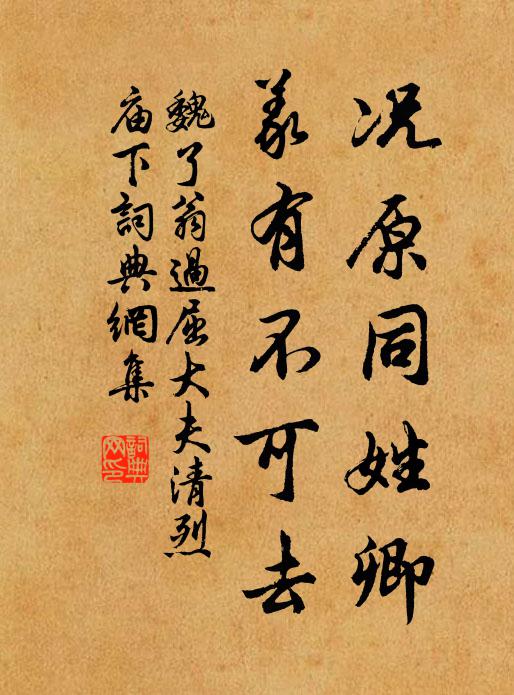 况原同姓卿
义有不可去
魏了翁過屈大夫清烈
庙下詞典網集
詞典
网印